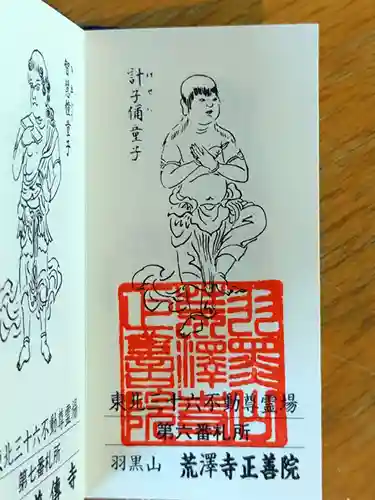 計子儞童子
けいしに
東北三十六不動尊霊場
第六番札所
羽黒山 荒澤寺正善院
羽黒山
荒澤寺
正善院
智慧幢童子
東北三十六不動尊霊場
第七番札所